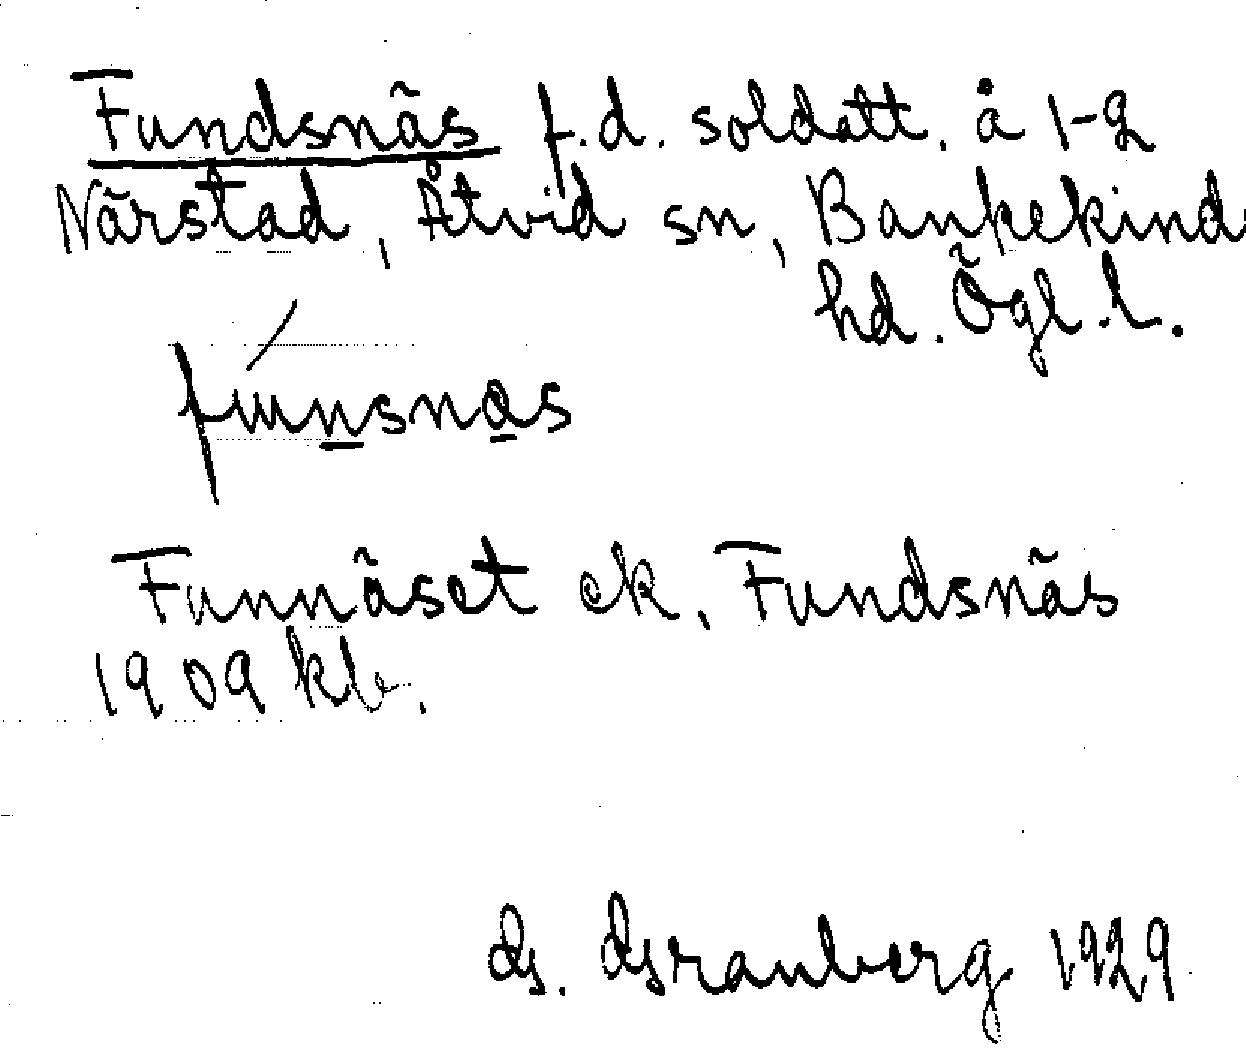 Fundsnäs f.d. soldatt. å 1-2
Närstad, Åtvid sn, Bankekind
hd. Ögl.l.
Funnäset ek, Fundsnäs
1909 kb.
G. Granberg 1929